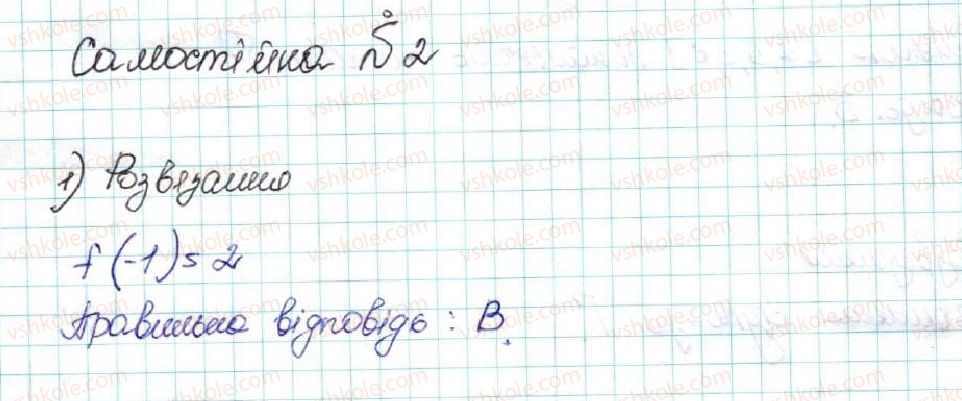 Самостійна №2
1) Розвязання
f(-1) = 2
Правильна відповідь : В.